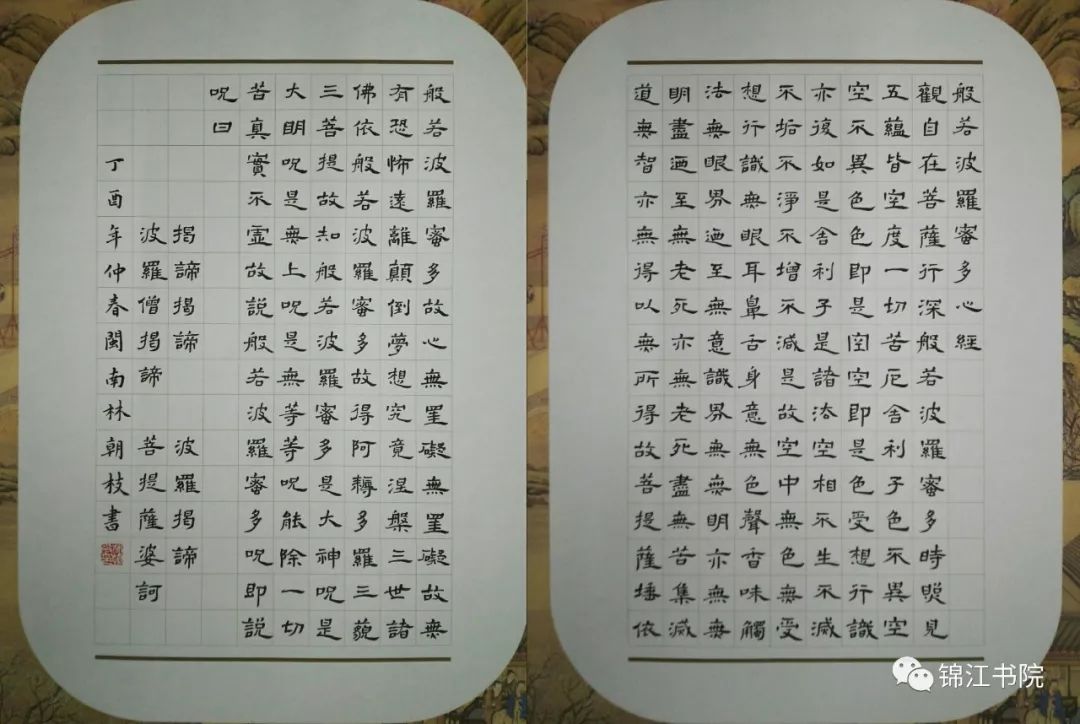 般若波羅蜜多心經
觀自在菩薩行深般若波羅蜜多時照見
五蘊皆空度一切苦厄舍利子色不異空
空不異色色即是空空即是色受想行識
亦復如是舍利子是諸法空相不生不滅
不垢不淨不增不減是故空中無色無受
想行識無眼耳鼻舌身意無色聲香味觸
法無眼界迺至無意識界無無明亦無無
明盡迺至無老死亦無老死盡無苦集滅
道無智亦無得以無所得故菩提薩埵依
般若波羅蜜多故心無罣礙無罣礙故無
有恐怖遠離顛倒夢想究竟涅槃三世諸
佛依般若波羅蜜多故得阿耨多羅三藐
三菩提故知般若波羅蜜多是大神呪是
大明呪是無上呪是無等等呪能除一切
苦真實不虛故說般若波羅蜜多呪即說
呪曰
揭諦揭諦 波羅揭諦
波羅僧揭諦 菩提薩婆訶
丁酉年仲春閩南林朝枝書
锦江书院